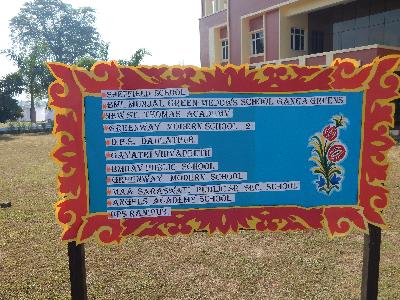 SHEFIELD SCHOOL
BML MUNJAL GREEN MEDOWS SCHOOL GANGA GREENS
NEW ST THOMAS ACADEMY
GREENWAY MODERN SCHOOL 2
D.P.S. DAULATPUR
GAYATRI VIDYAPEETH
PUBLIC SCHOOL
GREENWAY MODERN SCHOOL
MAA SARASWATI PUBLIC SR. SEC. SCHOOL
ANGELS ACADEMY SCHOOL
DPS RANIPUR